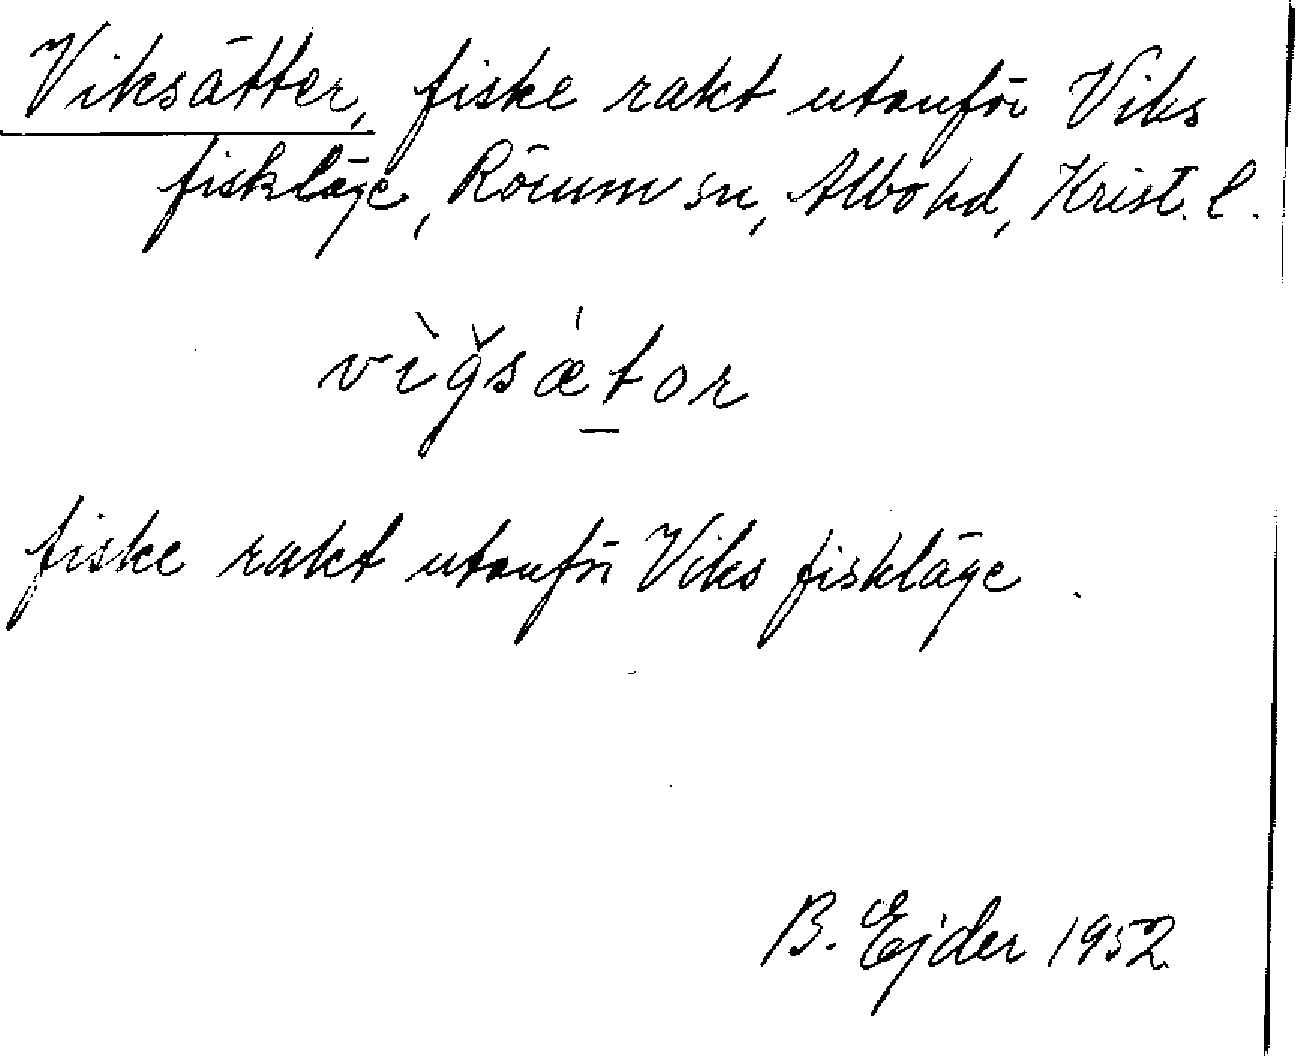 Viksätter, fiske rakt utanför Viks
fiskläge, Rörum sn, Albo hd, Krist. l.
vìǧsǽtor
fiske rakt utanför Viks fiskläge.
B. Ejder 1952